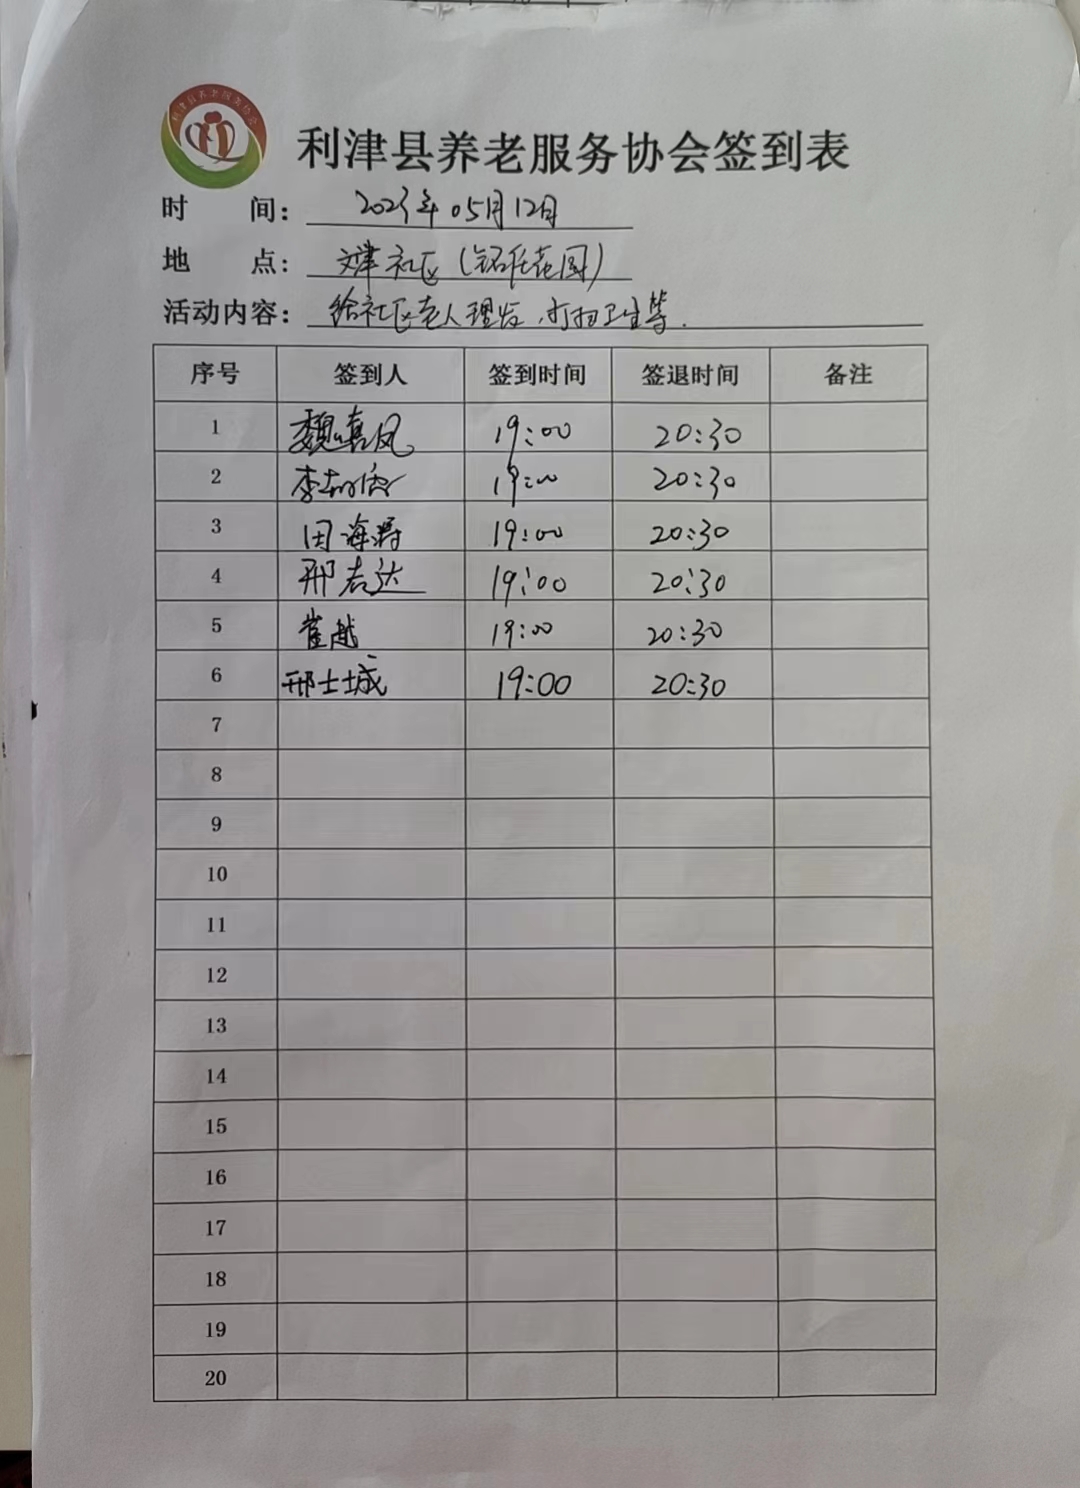 利津县养老服务协会
利津县养老服务协会签到表
时 间： 2023年05月12日
地 点： 文津社区（铭氏花园）
活动内容： 给社区老人理发、打扫卫生等.
序号 签到人 签到时间 签退时间 备注
1 魏喜凤 19:00 20:30
2 李 19:00 20:30
3 田海涛 19:00 20:30
4 邢志达 19:00 20:30
5 崔越 19:00 20:30
6 邢士城 19:00 20:30
7
8
9
10
11
12
13
14
15
16
17
18
19
20